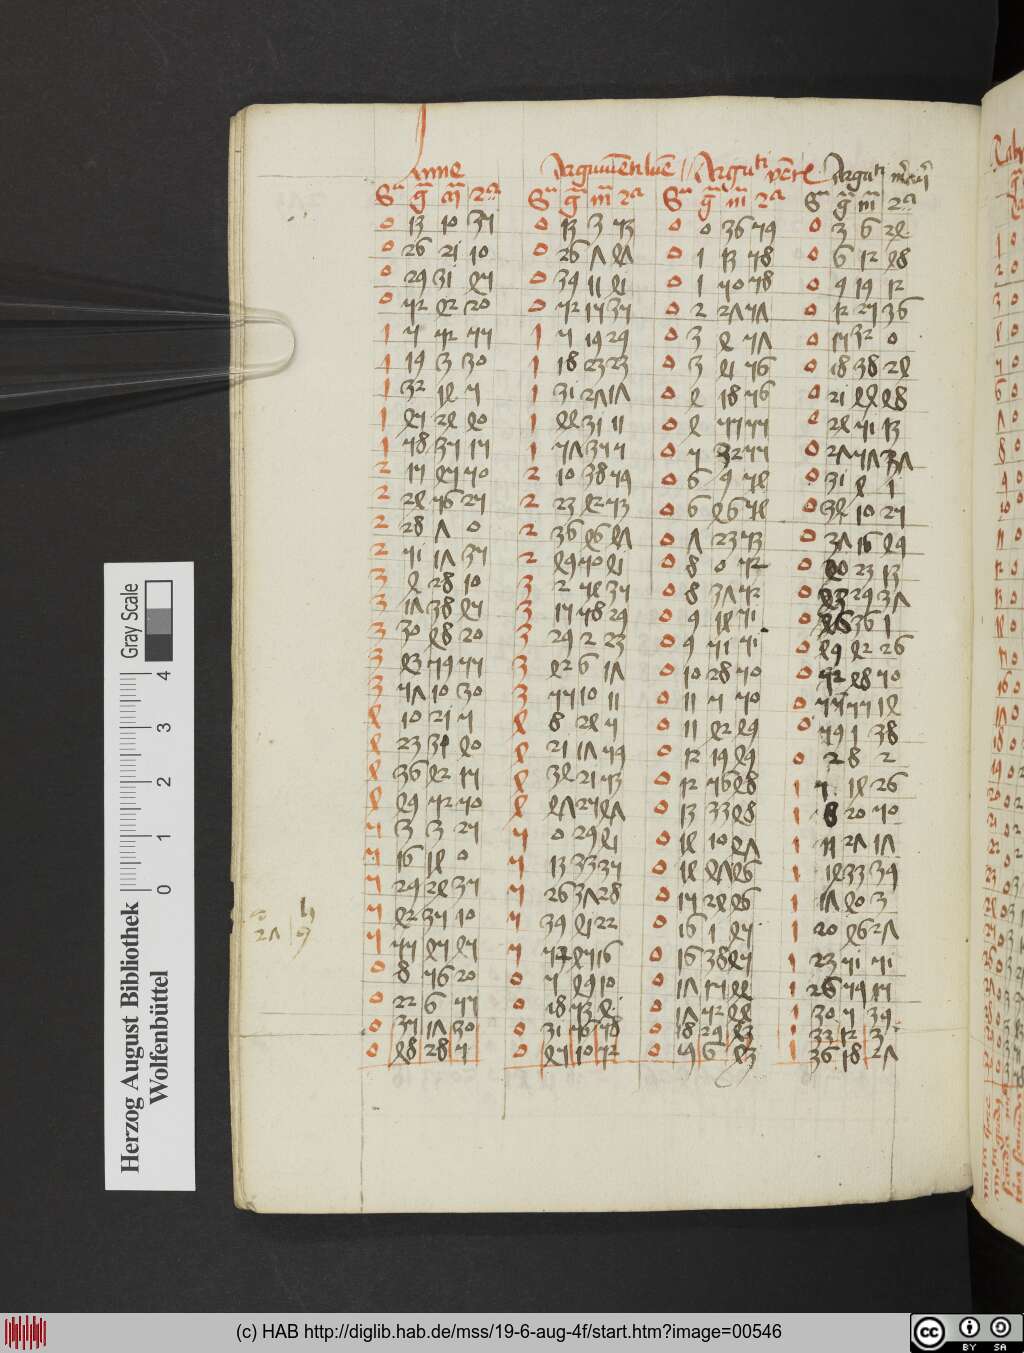 Lune Argumenti lune Argumenti veneris Argumenti mercurii
S g m 2a S g m 2a S g m 2a S g m 2a
0 13 10 35 0 13 3 53 0 0 36 59 0 3 6 24
0 26 21 10 0 26 7 47 0 1 13 58 0 6 12 48
0 29 31 45 0 39 11 41 0 1 50 58 0 9 19 12
0 52 42 20 0 52 15 35 0 2 27 57 0 12 25 36
1 5 52 55 1 5 19 29 0 3 4 57 0 15 32 0
1 19 3 30 1 18 23 23 0 3 41 56 0 18 38 24
1 32 14 5 1 31 27 17 0 4 18 56 0 21 44 48
1 45 24 40 1 44 31 11 0 4 55 55 0 24 51 13
1 58 35 15 1 57 35 5 0 5 32 55 0 27 57 37
2 15 45 50 2 10 38 59 0 6 9 54 0 31 4 1
2 24 56 25 2 23 42 53 0 6 46 54 0 34 10 25
2 28 7 0 2 36 46 47 0 7 23 53 0 37 16 49
2 51 17 35 2 49 50 41 0 8 0 52 0 40 23 13
3 4 28 10 3 2 54 35 0 8 37 52 0 43 29 37
3 17 38 45 3 15 58 29 0 9 14 51 0 46 36 1
3 30 48 20 3 29 2 23 0 9 51 51 0 49 42 26
3 43 59 55 3 42 6 17 0 10 28 50 0 52 48 50
3 57 10 30 3 55 10 11 0 11 5 50 0 55 55 14
4 10 21 5 4 8 24 5 0 11 42 49 0 59 1 38
4 23 31 40 4 21 17 59 0 12 19 49 0 2 8 2
4 36 42 15 4 34 21 53 0 12 56 48 1 5 14 26
4 49 52 50 4 47 25 47 0 13 33 48 1 8 20 50
5 3 3 25 5 0 29 41 0 14 10 47 1 11 27 17
5 16 14 0 5 13 33 35 0 14 47 46 1 14 33 39
5 29 24 35 5 26 37 28 0 15 24 46 1 17 40 3
5 42 35 10 5 39 41 22 0 16 1 45 1 20 46 27
5 55 45 45 5 52 45 16 0 16 38 45 1 23 51 51
0 8 56 20 0 5 49 10 0 17 15 44 1 26 59 15
0 22 6 55 0 18 53 4 0 17 52 44 1 30 5 39
0 35 17 30 0 31 56 58 0 18 29 43 1 33 12 3
0 48 28 5 0 45 10 52 0 9 6 43 1 36 18 27
Gray Scale
0 1 2 3 4
Herzog August Bibliothek
Wolfenbüttel
(c) HAB http://diglib.hab.de/mss/19-6-aug-4f/start.htm?image=00546
cc BY SA